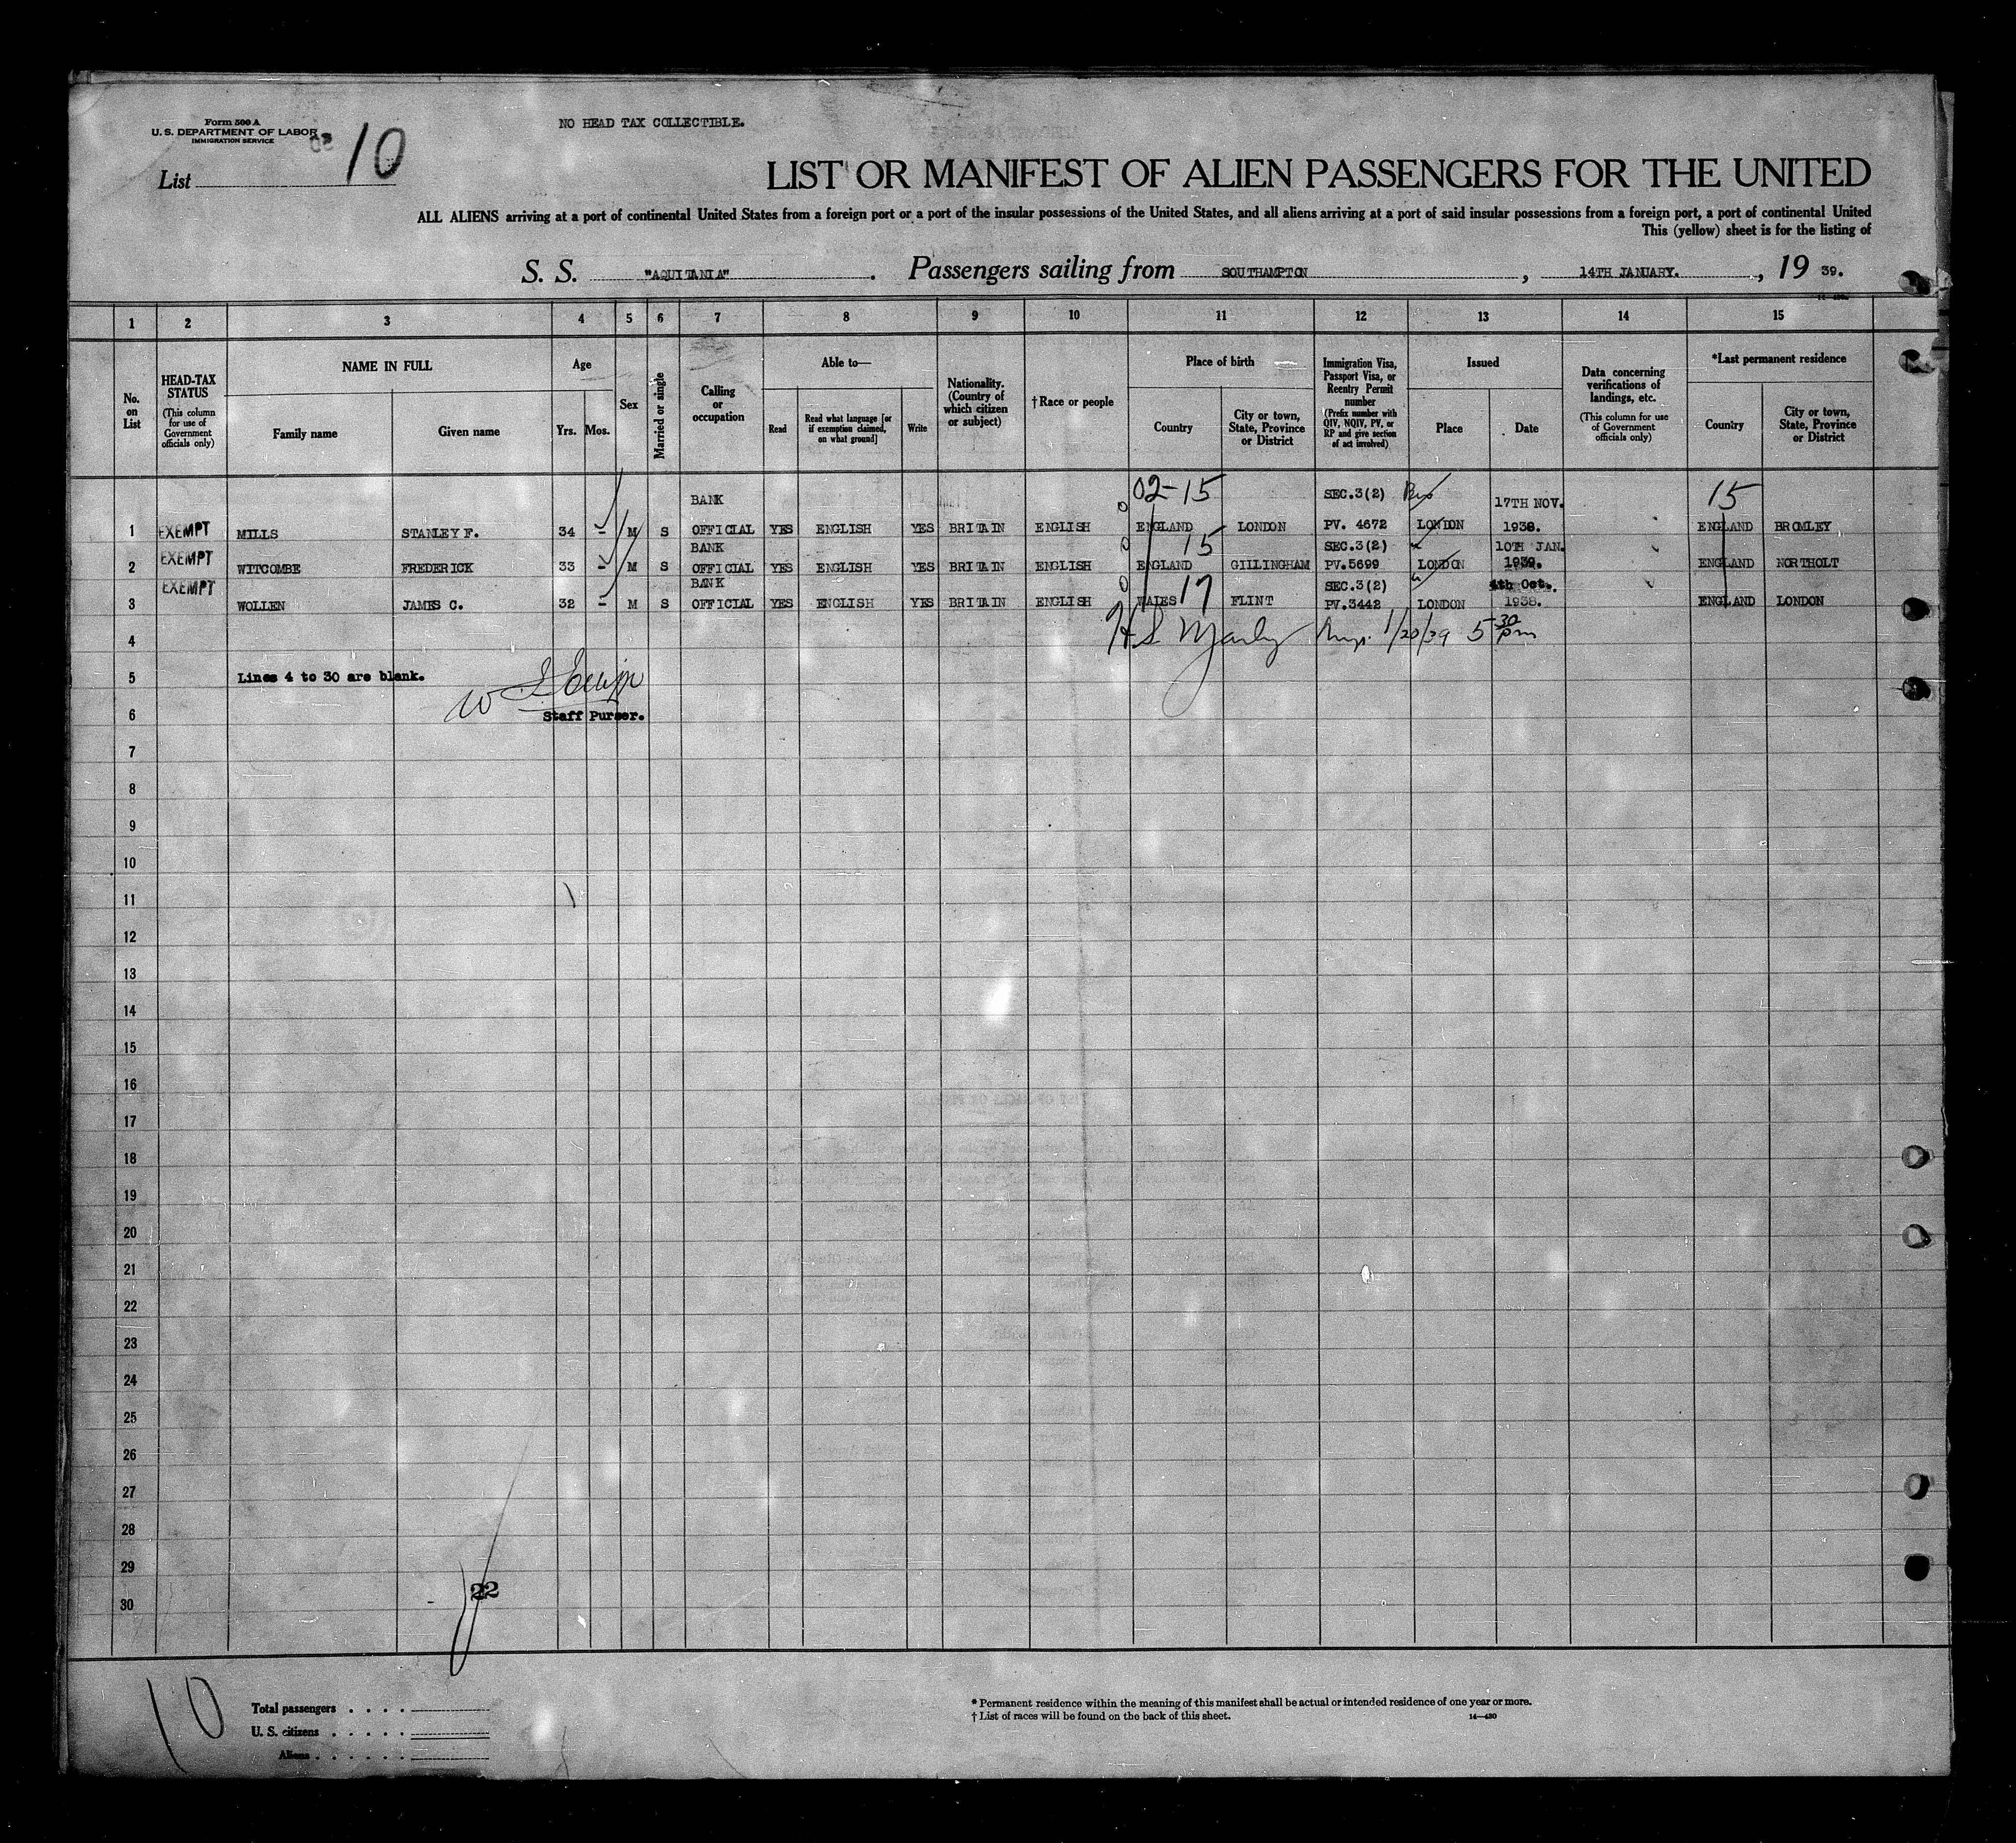 Form 500 A
U. S. DEPARTMENT OF LABOR
IMMIGRATION SERVICE
NO HEAD TAX COLLECTIBLE.
List 10
LIST OR MANIFEST OF ALIEN PASSENGERS FOR THE UNITED
ALL ALIENS arriving at a port of continental United States from a foreign port or a port of the insular possessions of the United States, and all aliens arriving at a port of said insular possessions from a foreign port, a port of continental United
This (yellow) sheet is for the listing of
S. S. "AQUITANIA". Passengers sailing from SOUTHAMPTON, 14TH JANUARY., 19 39.
1 2 3 4 5 6 7 8 9 10 11 12 13 14 15
No. on List
HEAD-TAX STATUS (This column for use of Government officials only)
NAME IN FULL
Family name Given name
Age
Yrs. Mos.
Sex
Married or single
Calling or occupation
Able to—
Read
Read what language [or if exemption claimed, on what ground]
Write
Nationality. (Country of which citizen or subject)
† Race or people
Place of birth
Country
City or town, State, Province or District
Immigration Visa, Passport Visa, or Reentry Permit number (Prefix number with QIV, NQIV, PV, or RP and give section of act involved)
Issued
Place Date
Data concerning verifications of landings, etc. (This column for use of Government officials only)
*Last permanent residence
Country
City or town, State, Province or District
02-15 15
BANK SEC.3(2) 17TH NOV.
1 EXEMPT MILLS STANLEY F. 34 - M S OFFICIAL YES ENGLISH YES BRITAIN ENGLISH ENGLAND LONDON PV. 4672 LONDON 1938. ENGLAND BROMLEY
BANK 15 SEC.3(2) 10TH JAN.
2 EXEMPT WITCOMBE FREDERICK 33 - M S OFFICIAL YES ENGLISH YES BRITAIN ENGLISH ENGLAND GILLINGHAM PV.5699 LONDON 1939. ENGLAND NORTHOLT
EXEMPT BANK 17 SEC.3(2) 4th Oct.
3 WOLLEN JAMES C. 32 - M S OFFICIAL YES ENGLISH YES BRITAIN ENGLISH WALES FLINT PV.3442 LONDON 1938. ENGLAND LONDON
4 1/20/39 5 30 pm
5 Lines 4 to 30 are blank.
6 Staff Purser.
7
8
9
10
11
12
13
14
15
16
17
18
19
20
21
22
23
24
25
26
27
28
29
22
30
10
Total passengers . . . .
U. S. citizens . . . . .
Aliens . . . . . .
* Permanent residence within the meaning of this manifest shall be actual or intended residence of one year or more.
† List of races will be found on the back of this sheet. 14—430